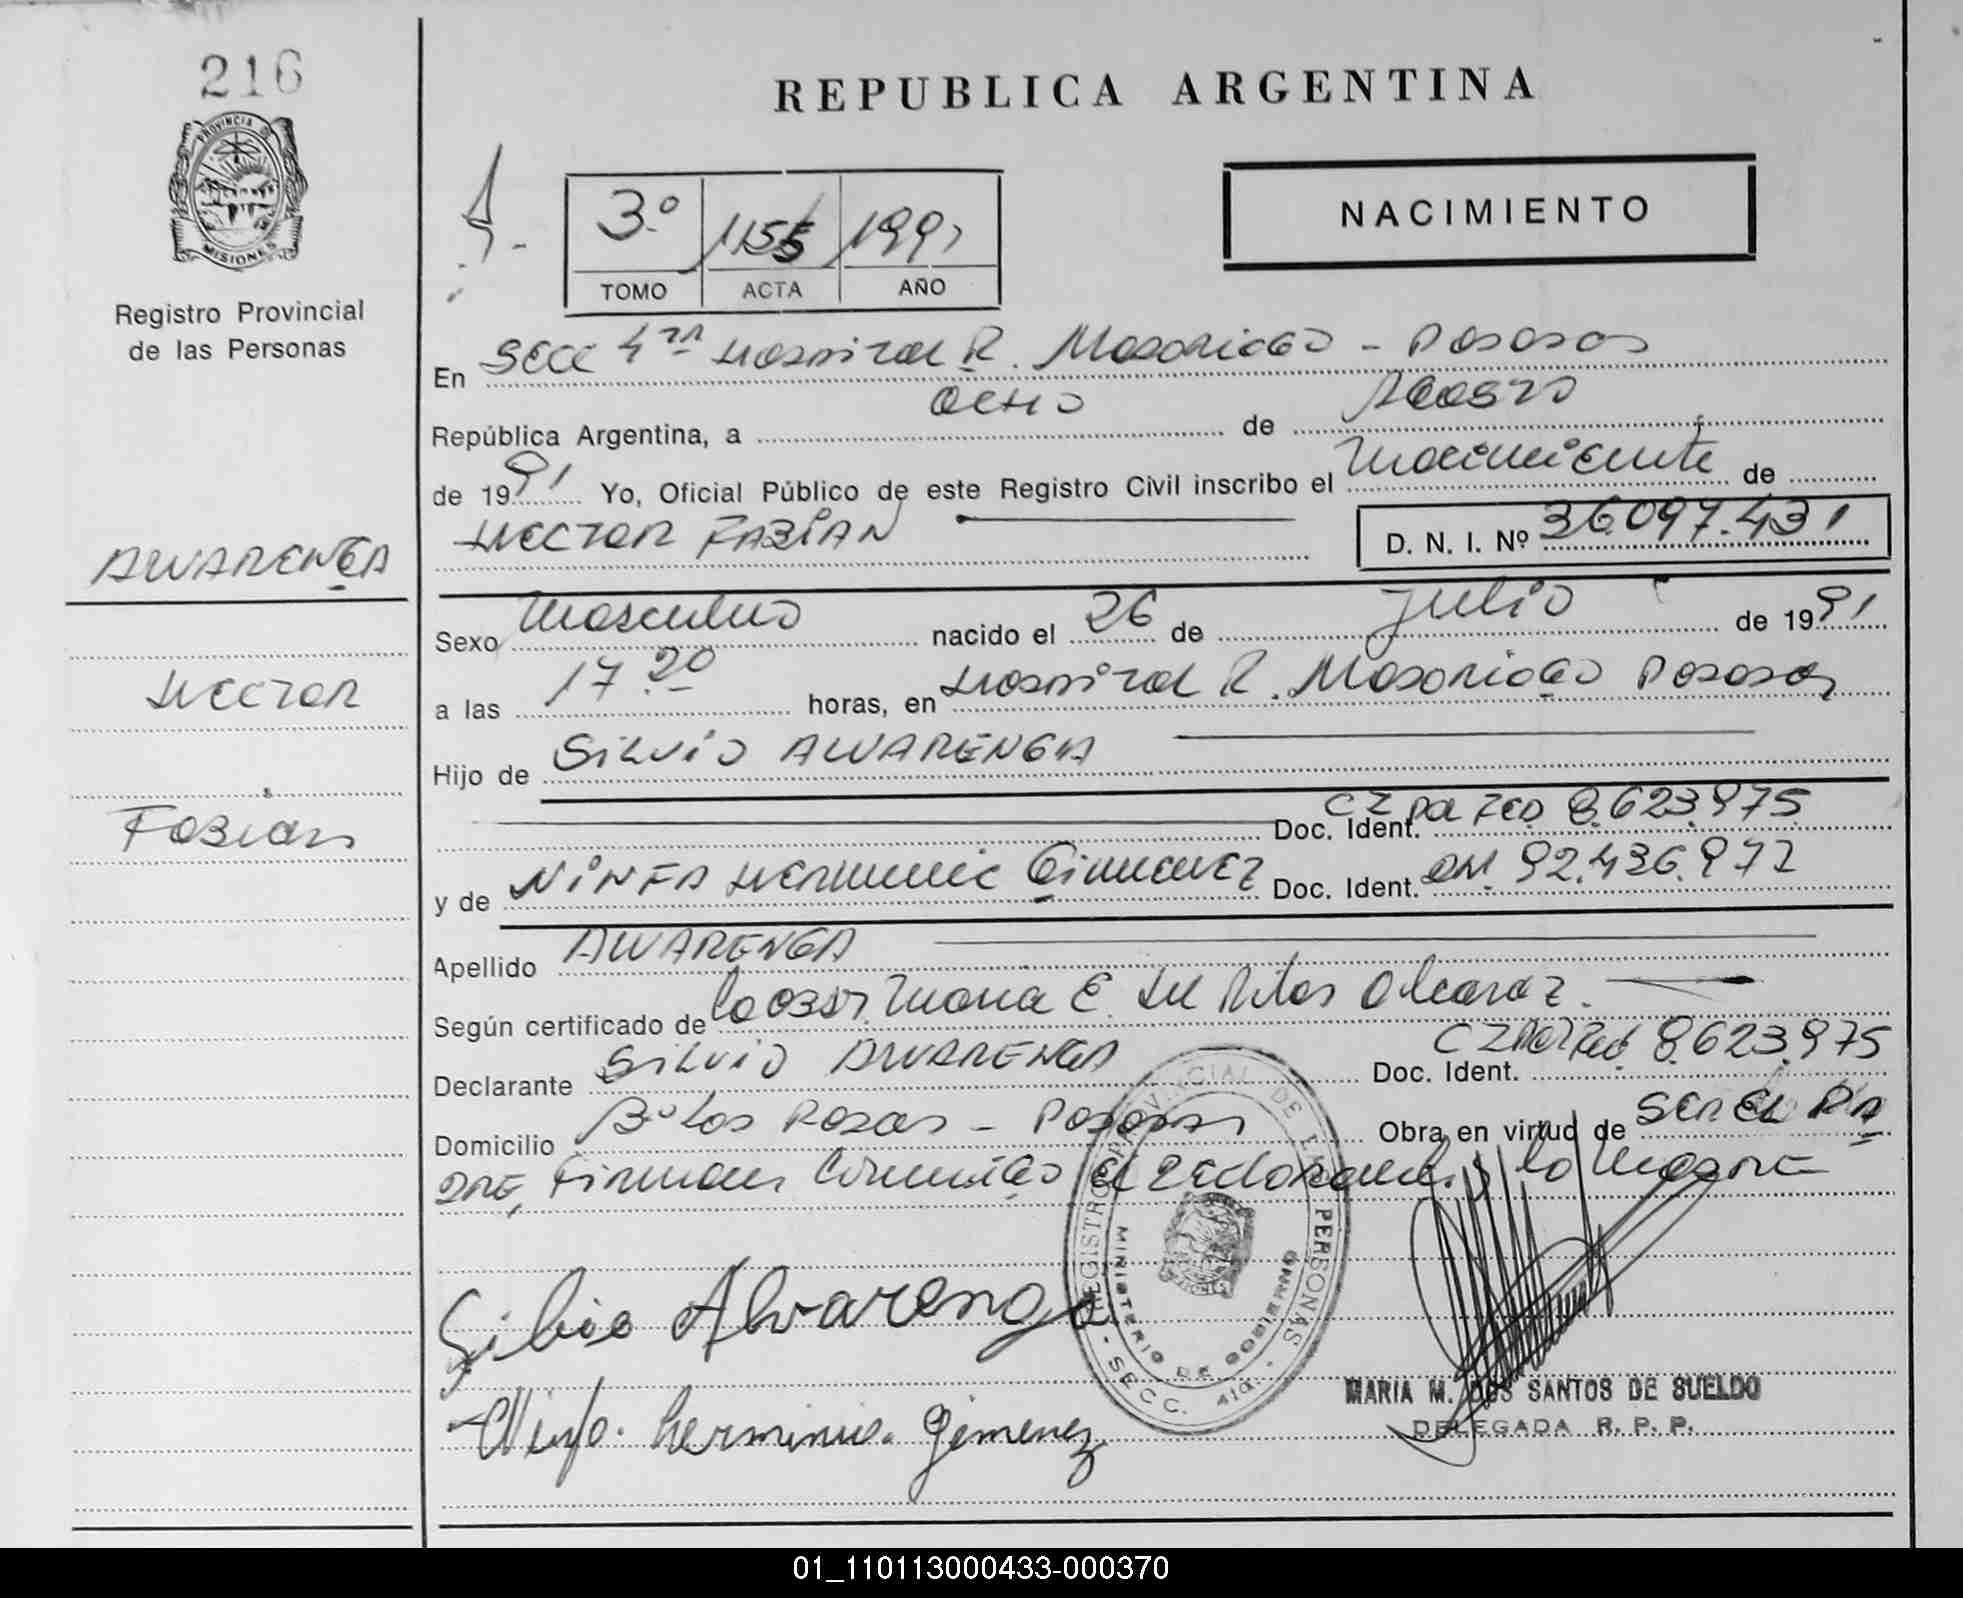 216
REPUBLICA ARGENTINA
PROVINCIA DE
MISIONES
Registro Provincial
de las Personas
3º 1155 1991
TOMO ACTA AÑO
NACIMIENTO
En SECC 4ta Hospital R. Madariaga - Posadas
República Argentina, a OCHO de Agosto
de 1991 Yo, Oficial Público de este Registro Civil inscribo el Nacimiento de
HECTOR FABIAN D. N. I. Nº 36.097.431
ALVARENGA
Hector
Fabian
Sexo Masculino nacido el 26 de Julio de 1991
a las 17.20 horas, en Hospital R. Madariaga Posadas
Hijo de SILVIO ALVARENGA
Doc. Ident. CI Pol Fed 8.623.975
y de NINFA Herminia Gimenez Doc. Ident. DNI 92.436.977
Apellido ALVARENGA
Según certificado de la Obst. Maria E. Del Alcaraz.
Declarante SILVIO ALVARENGA Doc. Ident. CI Pol Fed 8.623.975
Domicilio Bº Las Rosas - Posadas Obra en virtud de SER EL PA
DRE, Firman Conmigo el Declarante y la Madre
Silvio Alvarenga
Ninfa Herminia Gimenez
REGISTRO PROVINCIAL DE LAS PERSONAS
MINISTERIO DE GOBIERNO
- SECC. 4ta. -
MARIA M. DOS SANTOS DE SUELDO
DELEGADA R. P. P.
01_110113000433-000370